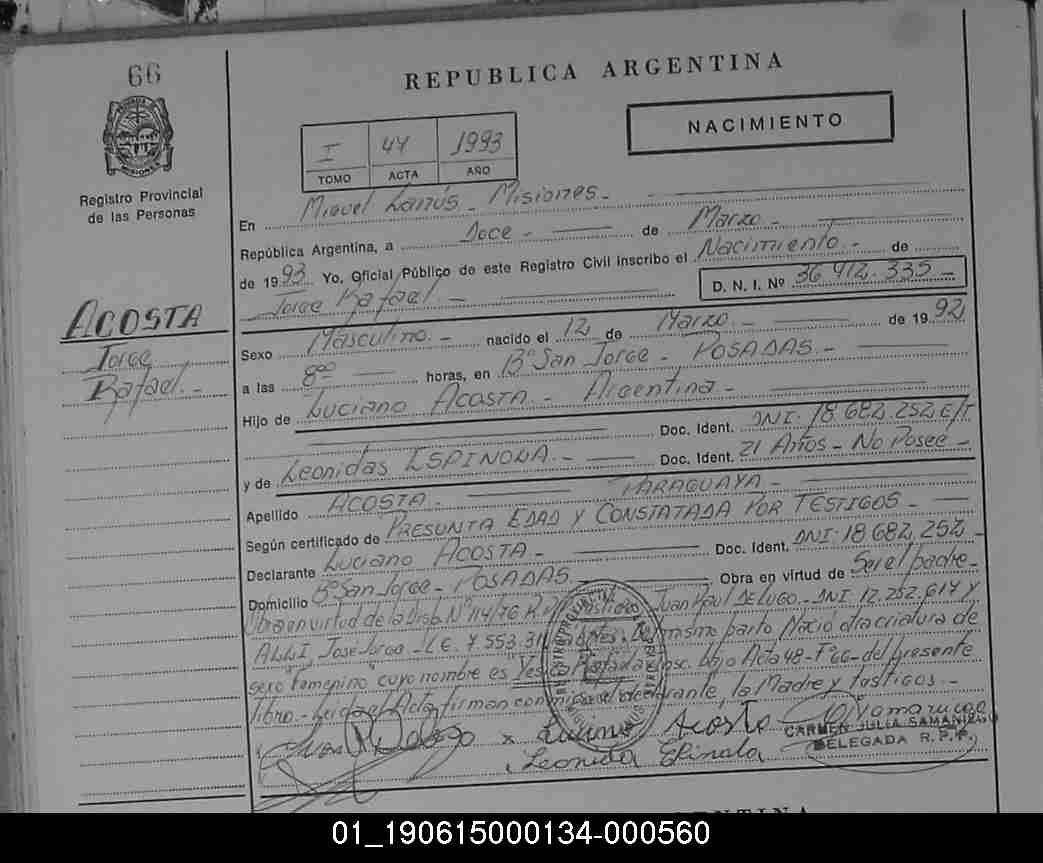 66
REPUBLICA ARGENTINA
NACIMIENTO
I 47 1993
TOMO ACTA AÑO
MISIONES
Registro Provincial
de las Personas
En Miguel Lanús - Misiones -
República Argentina, a Doce - de Marzo -
de 1993 Yo, Oficial Público de este Registro Civil inscribo el Nacimiento - de
Jorge Rafael - D. N. I. Nº 36 912.335 -
ACOSTA
Jorge
Rafael -
Sexo Masculino - nacido el 12 de Marzo - de 1992
a las 8 horas, en Bº San Jorge - POSADAS -
Hijo de Luciano ACOSTA - Argentina -
Doc. Ident. DNI: 18.682.252 E/T
y de Leonidas ESPINOLA - Doc. Ident. 21 Años - No Posee -
Apellido ACOSTA - PARAGUAYA -
Según certificado de PRESUNTA EDAD Y CONSTATADA POR TESTIGOS -
Declarante Luciano ACOSTA - Doc. Ident. DNI: 18.682.252 -
Domicilio Bº San Jorge - POSADAS Obra en virtud de Ser el padre -
Obra en virtud de la Disp. Nº 114/76 Juan Raul DE LUGO - DNI 12.252.617 y
José L.E. 7.553.31 Del mismo parto Nació otra criatura de
sexo Femenino cuyo nombre es bajo Acta 48 - Fº 66 - del presente
libro - Leída el Acta firman conmigo el declarante, la Madre y testigos -
x Luciano Acosta
Leonida Espinola
CARMEN JULIA SAMANIEGO
DELEGADA R.P.P.
01_190615000134-000560